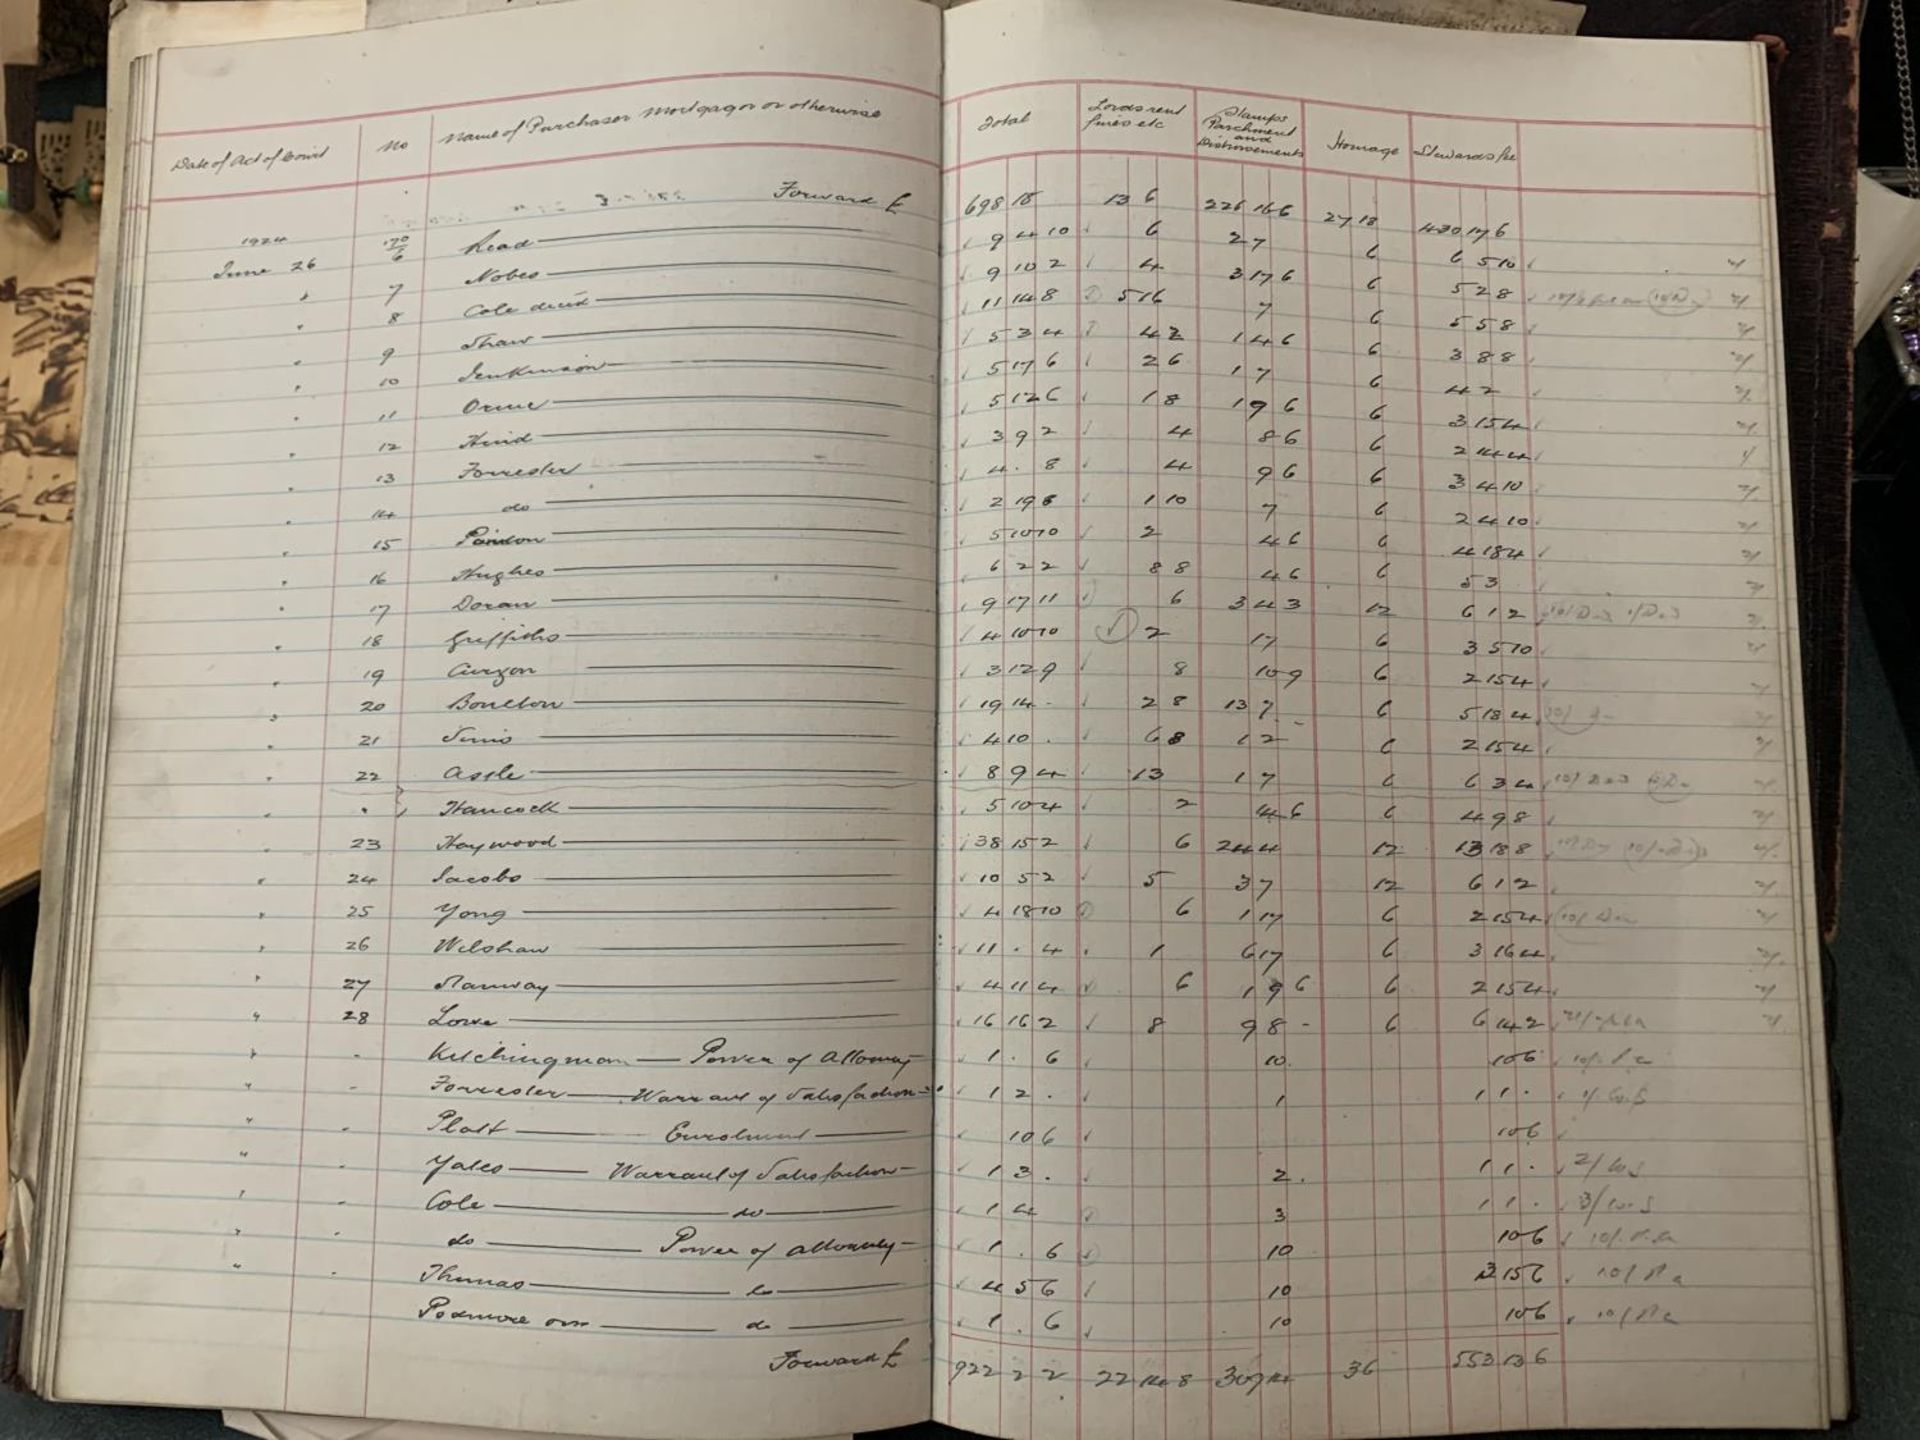 Date of Act of Court No Name of Purchaser Mortgagor or otherwise Total Lords rent fines etc Stamps Parchment and Disbursements Homage Stewards fee
Forward £ 698 18 13 6 226 16 6 27 18 430 17 6
1924
June 26 170/6 Read 9 4 10 6 2 7 6 6 5 10
" 7 Nobes 9 10 2 4 3 17 6 6 5 2 8
" 8 Cole decd 11 14 8 5 16 7 6 5 5 8
" 9 Shaw 5 3 4 4 2 1 4 6 6 3 8 8
" 10 Jenkinson 5 17 6 2 6 1 7 6 4 2
" 11 Orme 5 12 6 1 8 1 9 6 6 3 15 4
" 12 Hind 3 9 2 4 8 6 6 2 14 4
" 13 Forrester 4 . 8 4 9 6 6 3 4 10
" 14 do 2 19 8 1 10 7 6 2 4 10
" 15 5 10 10 2 4 6 6 4 18 4
" 16 Hughes 6 2 2 8 8 4 6 6 5 3
" 17 Doran 9 17 11 6 3 4 3 12 6 1 2
" 18 Griffiths 4 10 10 2 17 6 3 5 10
" 19 Curzon 3 12 9 8 10 9 6 2 15 4
" 20 Boulton 19 14 . 2 8 13 7 - 6 5 18 4
" 21 4 10 . 6 8 1 2 6 2 15 4
" 22 Astle 8 9 4 13 1 7 6 6 3 4
" " Hancock 5 10 4 2 4 6 6 4 9 8
" 23 Haywood 38 15 2 6 24 4 4 12 13 18 8
" 24 Jacobs 10 5 2 5 3 7 12 6 1 2
" 25 Yong 4 18 10 6 1 17 6 2 15 4
" 26 Welshaw 11 . 4 1 6 17 6 3 16 4
" 27 4 11 4 6 1 9 6 6 2 15 4
" 28 Lowe 16 16 2 8 9 8 - 6 6 14 2
" - Kitchingman Power of Attorney 1 . 6 10 . 10 6
" - Forrester Warrant of Satisfaction 1 2 . 1 1 1 .
" - Platt Enrolment 10 6 10 6
" - Yates Warrant of Satisfaction 1 3 . 2 . 1 1 .
" - Cole do 1 4 3 1 1 .
" - do Power of Attorney 1 . 6 10 10 6
" - Thomas do 4 5 6 10 3 15 6
Podmore do 1 . 6 10 10 6
Forward £ 922 2 2 22 14 8 309 14 36 553 13 6